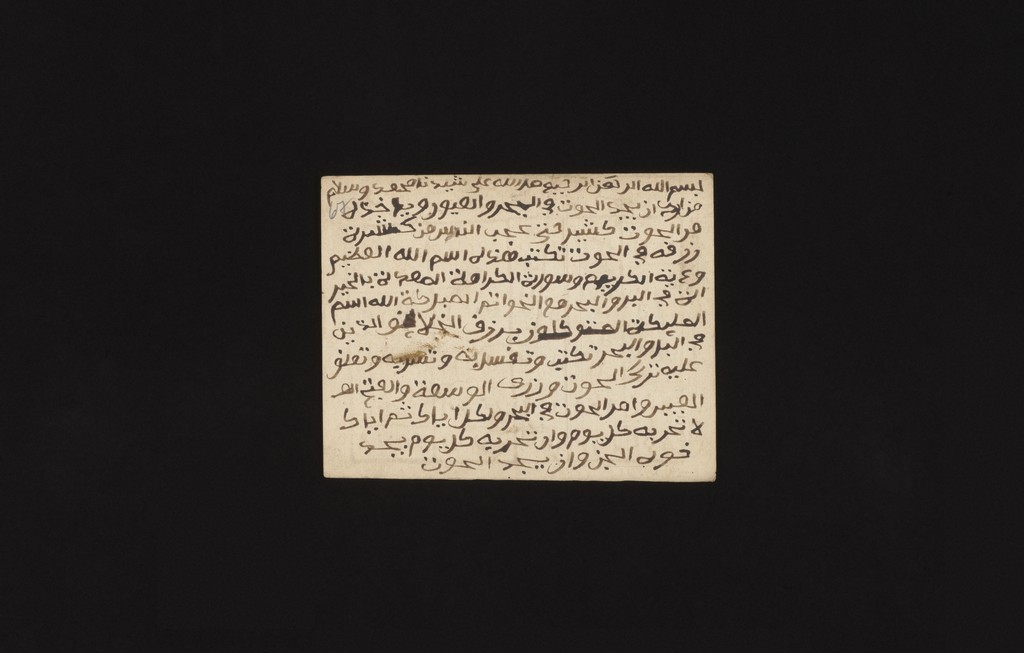 بسم الله الرحمن الرحيم صل الله على سيدنا محمد وسلام
من اراد ان يجد الحوت في البحر والعيون وياخذ له
من الحوت كثير حتى عجب الناس من كثرة
رزقه في الحوت تكتب هذاله اسم الله العظيم
وءاية الكريم وسورة الكرامة بالخير
في البر والبحر مع الخواتم المبركة الله اسم
المليكة ويرزق الخلا والذين
في البر والبحر تكتب وتغسل به وتشربه وتعلق
عليه ترى الحوت وترى الوسعة والفتح
الكبير وامر الحوت في البحر ولكن اياك ثم اياك
لا تجربه كل يوم وان تجربه كل يوم يجد
خوف الجن وان يجد الحوت